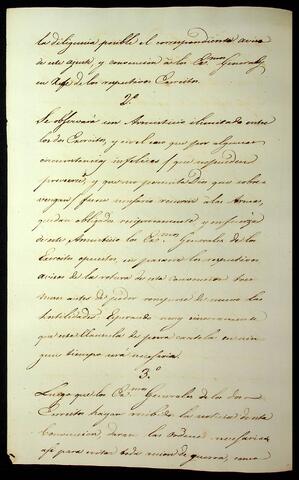 la diligencia posible el correspondiente aviso
de este ajuste, y convencion á los Ex.mos Generales
en Xefe de los respectivos Exercitos.
2.º
Se observará un Armisticio ilimitado entre
los dos Exercitos, y en el caso que por algunas
circunstancias infelices (que no pueden
preverse, y que no permita Dios que sobre-
vengan) fuere necesario recurrir á las Armas,
quedan obligados reciprocamente en fuerza
de este Armisticio los Ex.mos Generales de los
Exercitos opuestos, en pasarse los respectivos
avisos de la rotura de esta convencion
mes antes de poder romperse de nuevo las
hostilidades. Esperando muy sinceramente
que esa Clausula de pura cautela en nin-
gun tiempo será necesaria.
3.º
Luego que los Ex.mos Generales de los dos
Exercitos hayan recibido la noticia de esta
Convencion, daran las ordenes necesarias
asi para evitar toda accion de guerra, como